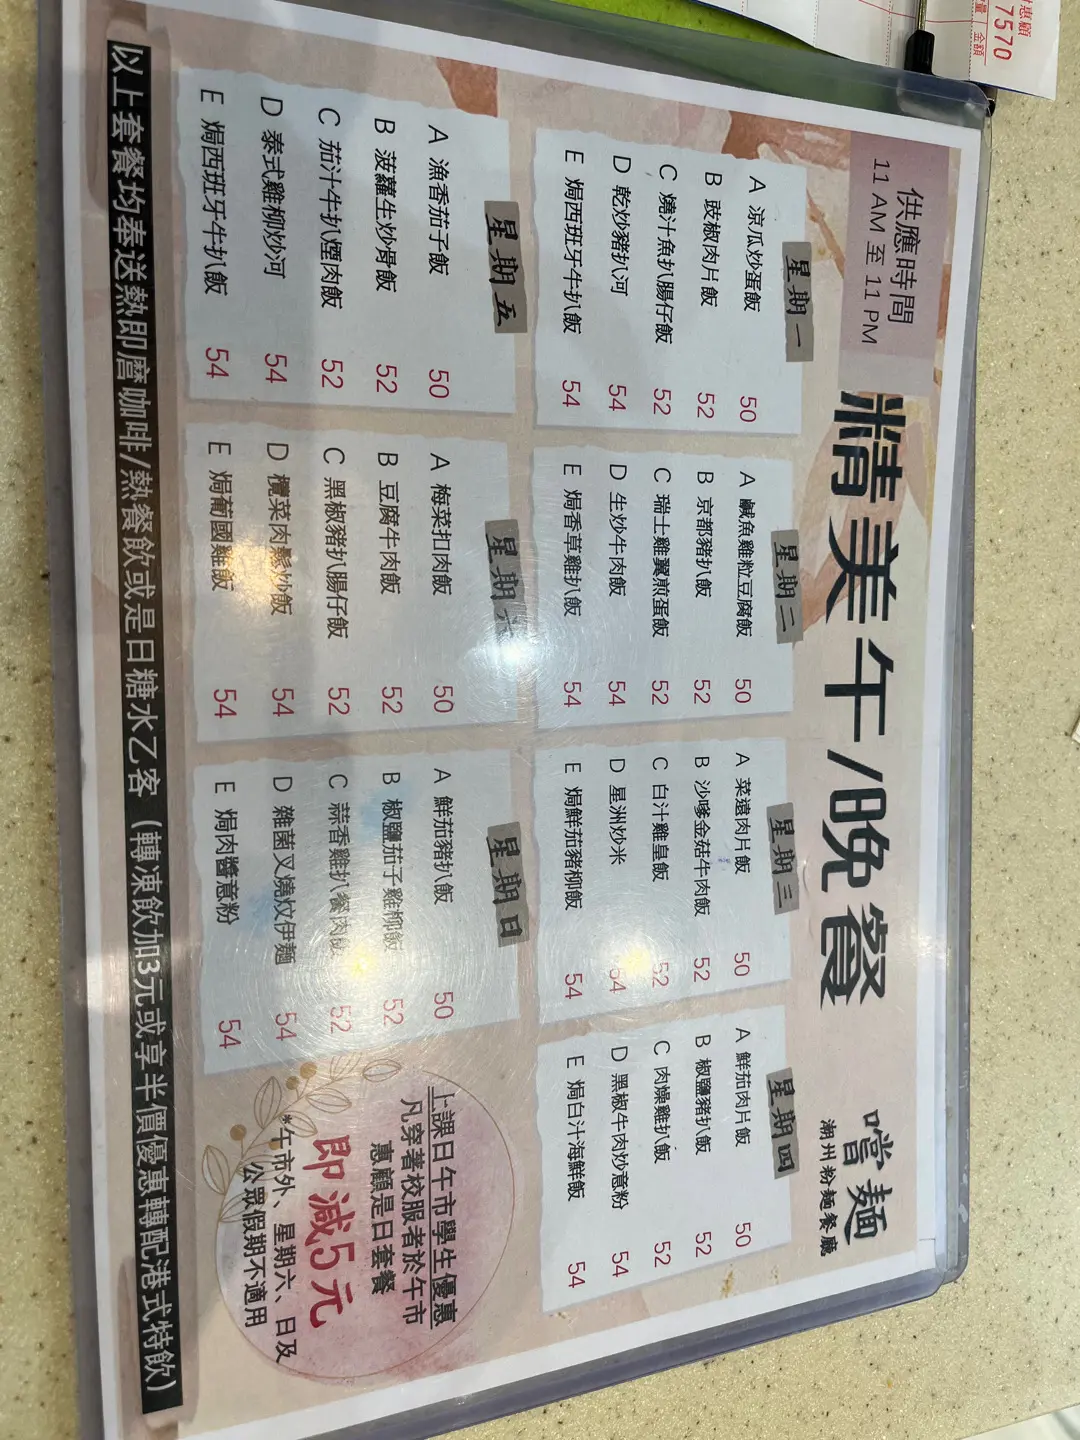 惠顧
7570
量 金額
供應時間
11 AM 至 11 PM
精美午/晚餐
嚐麵
潮州粉麵餐廳
星期一
A 涼瓜炒蛋飯 50
B 豉椒肉片飯 52
C 燒汁魚扒腸仔飯 52
D 乾炒豬扒河 54
E 焗西班牙牛扒飯 54
星期二
A 鹹魚雞粒豆腐飯 50
B 京都豬扒飯 52
C 瑞士雞翼煎蛋飯 52
D 生炒牛肉飯 54
E 焗香草雞扒飯 54
星期三
A 菜遠肉片飯 50
B 沙嗲金菇牛肉飯 52
C 白汁雞皇飯 52
D 星洲炒米 54
E 焗鮮茄豬柳飯 54
星期四
A 鮮茄肉片飯 50
B 椒鹽豬扒飯 52
C 肉燥雞扒飯 52
D 黑椒牛肉炒意粉 54
E 焗白汁海鮮飯 54
星期五
A 漁香茄子飯 50
B 菠蘿生炒骨飯 52
C 茄汁牛扒煙肉飯 52
D 泰式雞柳炒河 54
E 焗西班牙牛扒飯 54
星期六
A 梅菜扣肉飯 50
B 豆腐牛肉飯 52
C 黑椒豬扒腸仔飯 52
D 欖菜肉鬆炒飯 54
E 焗葡國雞飯 54
星期日
A 鮮茄豬扒飯 50
B 椒鹽茄子雞柳飯 52
C 蒜香雞扒餐肉飯 52
D 雜菌叉燒炆伊麵 54
E 焗肉醬意粉 54
上課日午市學生優惠
凡穿著校服者於午市
惠顧是日套餐
即減5元
*午市外、星期六、日及
公眾假期不適用
以上套餐均奉送熱即磨咖啡/熱餐飲或是日糖水乙客（轉凍飲加3元或享半價優惠轉配港式特飲）